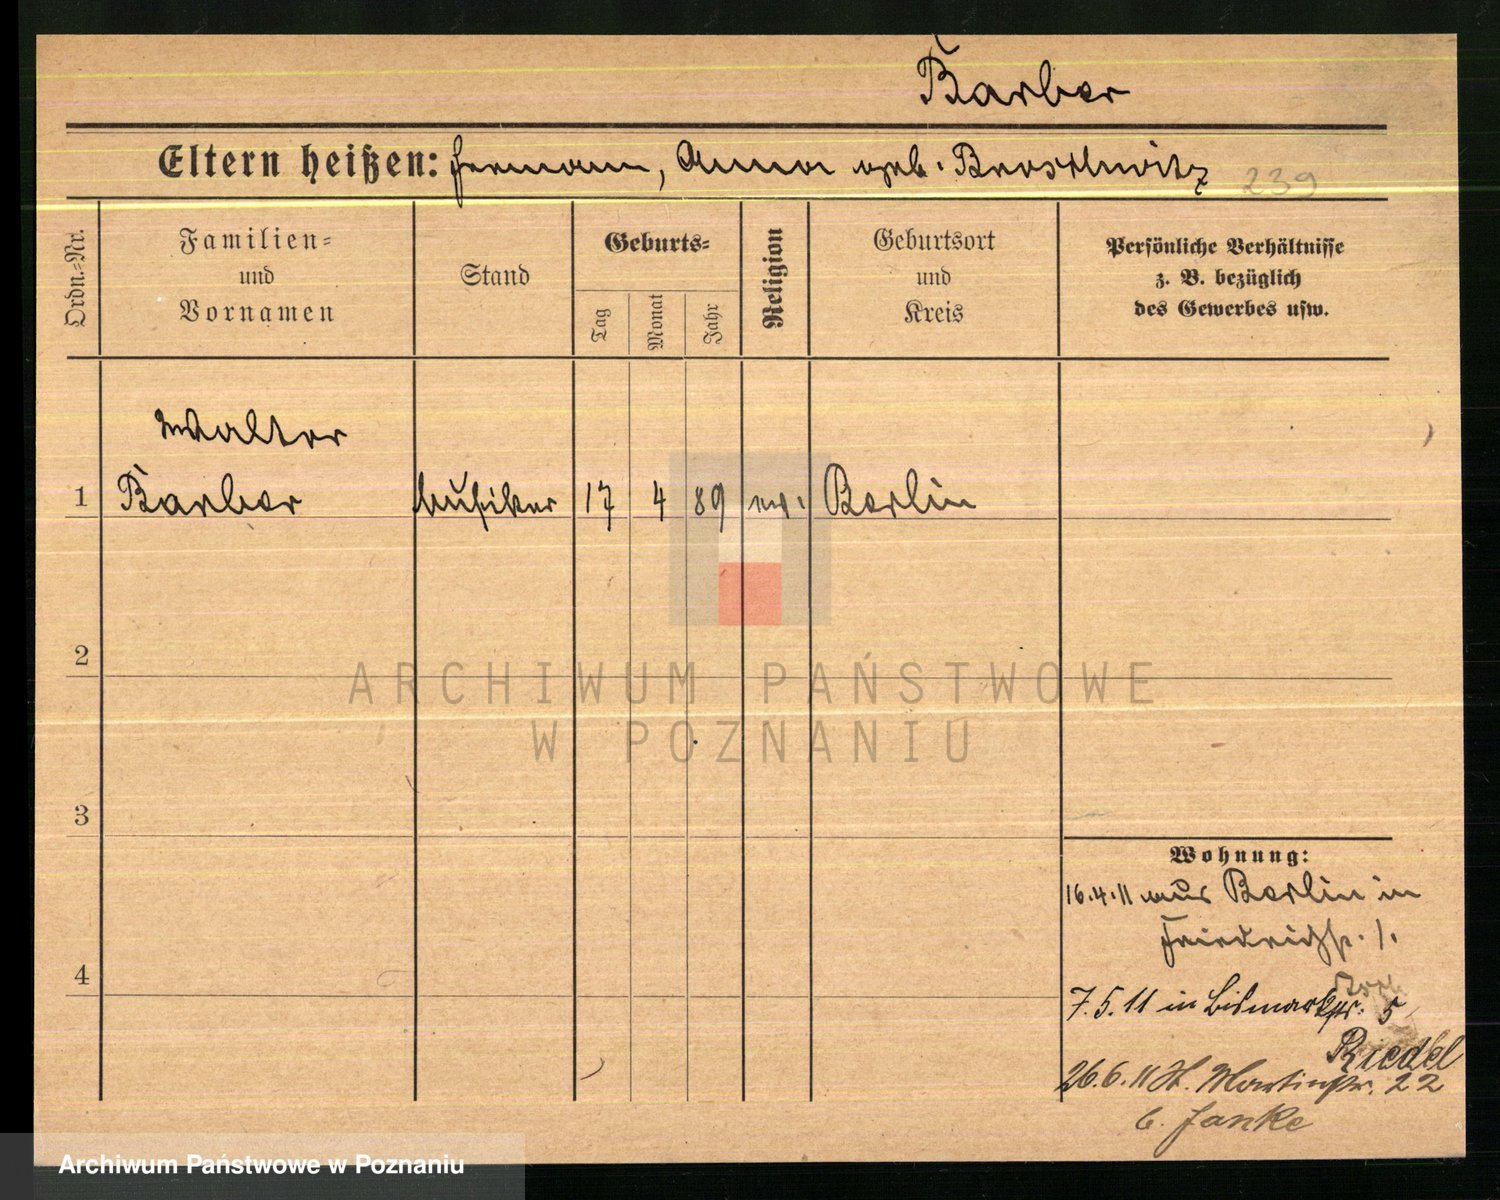 Barber
Eltern heißen: Hermann, Anna geb.
239
Ordn.-Nr.
Familien-
und
Vornamen
Stand
Geburts-
Tag
Monat
Jahr
Religion
Geburtsort
und
Kreis
Persönliche Verhältnisse
z. B. bezüglich
des Gewerbes usw.
Walter
1 Barber Musiker 17 4 89 ev. Berlin
2
3
4
Wohnung:
16.4.11 aus Berlin in
Friedrichstr. 1.
7.5.11 in Bismarkstr. 5
Riedel
26.6.11 St. Martinstr. 22
b. Janke
ARCHIWUM PAŃSTWOWE
W POZNANIU
Archiwum Państwowe w Poznaniu